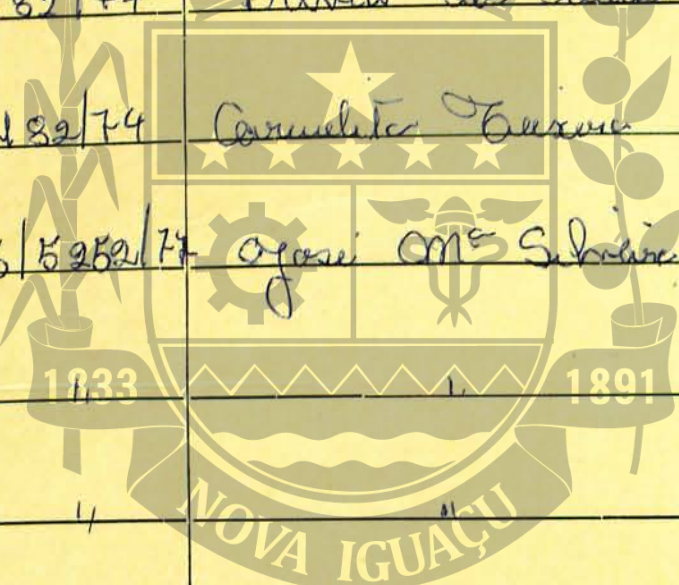 82/74 Carmelita Teixeira
/5252/77 José Mª Silveira
1833 " " 1891
" "
NOVA IGUAÇU